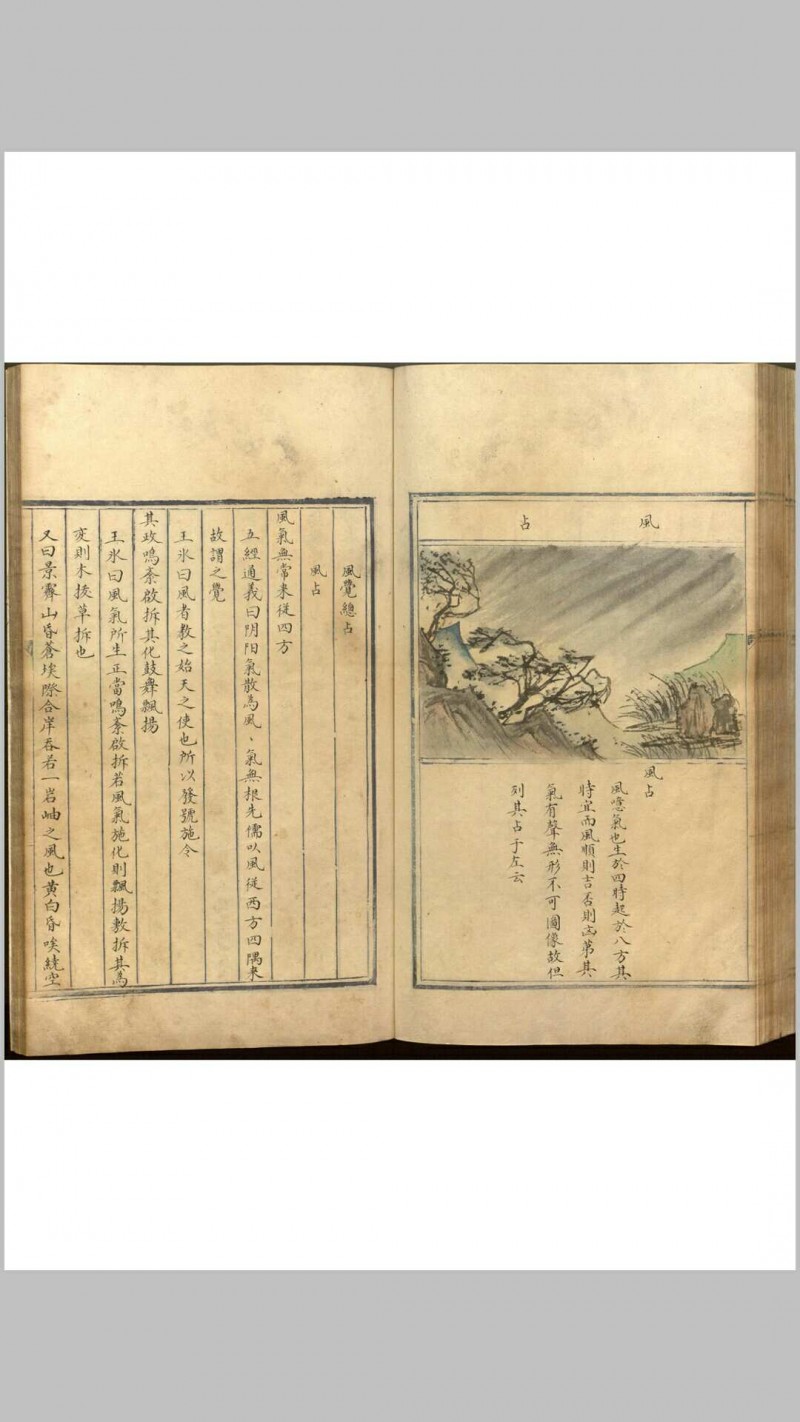 風占
風占
風噫氣也生於四時起於八方其
時宜而風順則吉否則凶第其
氣有聲無形不可圖像故但
列其占于左云
風覺總占
風占
風氣無常来從四方
五經通義曰阴阳氣散為風、氣無根先儒以風從西方四隅来
故謂之覺
王氷曰風者教之始天之使也所以發號施令
其政鳴紊啟拆其化鼓舞飄揚
王氷曰風氣所生正當鳴紊啟拆若風氣施化則飄揚敷拆其為
变則木拔草拆也
又曰景霽山昏蒼埃際合岸吞若一岩岫之風也黄白昏埃繞空